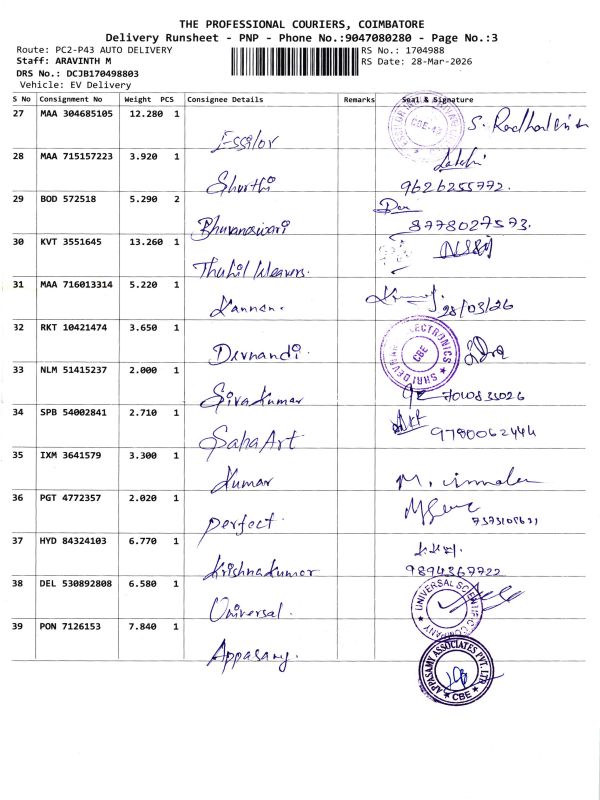 THE PROFESSIONAL COURIERS, COIMBATORE
Delivery Runsheet - PNP - Phone No.:9047080280 - Page No.:3
Route: PC2-P43 AUTO DELIVERY
RS No.: 1704988
Staff: ARAVINTH M
RS Date: 28-Mar-2026
DRS No.: DCJB170498803
Vehicle: EV Delivery
S No Consignment No Weight PCS Consignee Details Remarks Seal & Signature
27 MAA 304685105 12.280 1 Essilor
CBE-45
28 MAA 715157223 3.920 1 Shurthi 9626255772.
29 BOD 572518 5.290 2 Bhuvaneswari 8778027573.
30 KVT 3551645 13.260 1 Thuhil Weavers.
31 MAA 716013314 5.220 1 Kannan. 28/03/26
32 RKT 10421474 3.650 1 Devnandi.
SHRI DEVNANDI ELECTRONICS CBE
33 NLM 51415237 2.000 1 Sivakumar 7010835026
34 SPB 54002841 2.710 1 Saha Art 9780062444
35 IXM 3641579 3.300 1 Kumar
36 PGT 4772357 2.020 1 perfect.
37 HYD 84324103 6.770 1 Krishnakumar 9894367722
38 DEL 530892808 6.580 1 Universal.
UNIVERSAL SCIENTIFIC COMPANY
39 PON 7126153 7.840 1 Appasamy.
APPASAMY ASSOCIATES PVT. LTD CBE